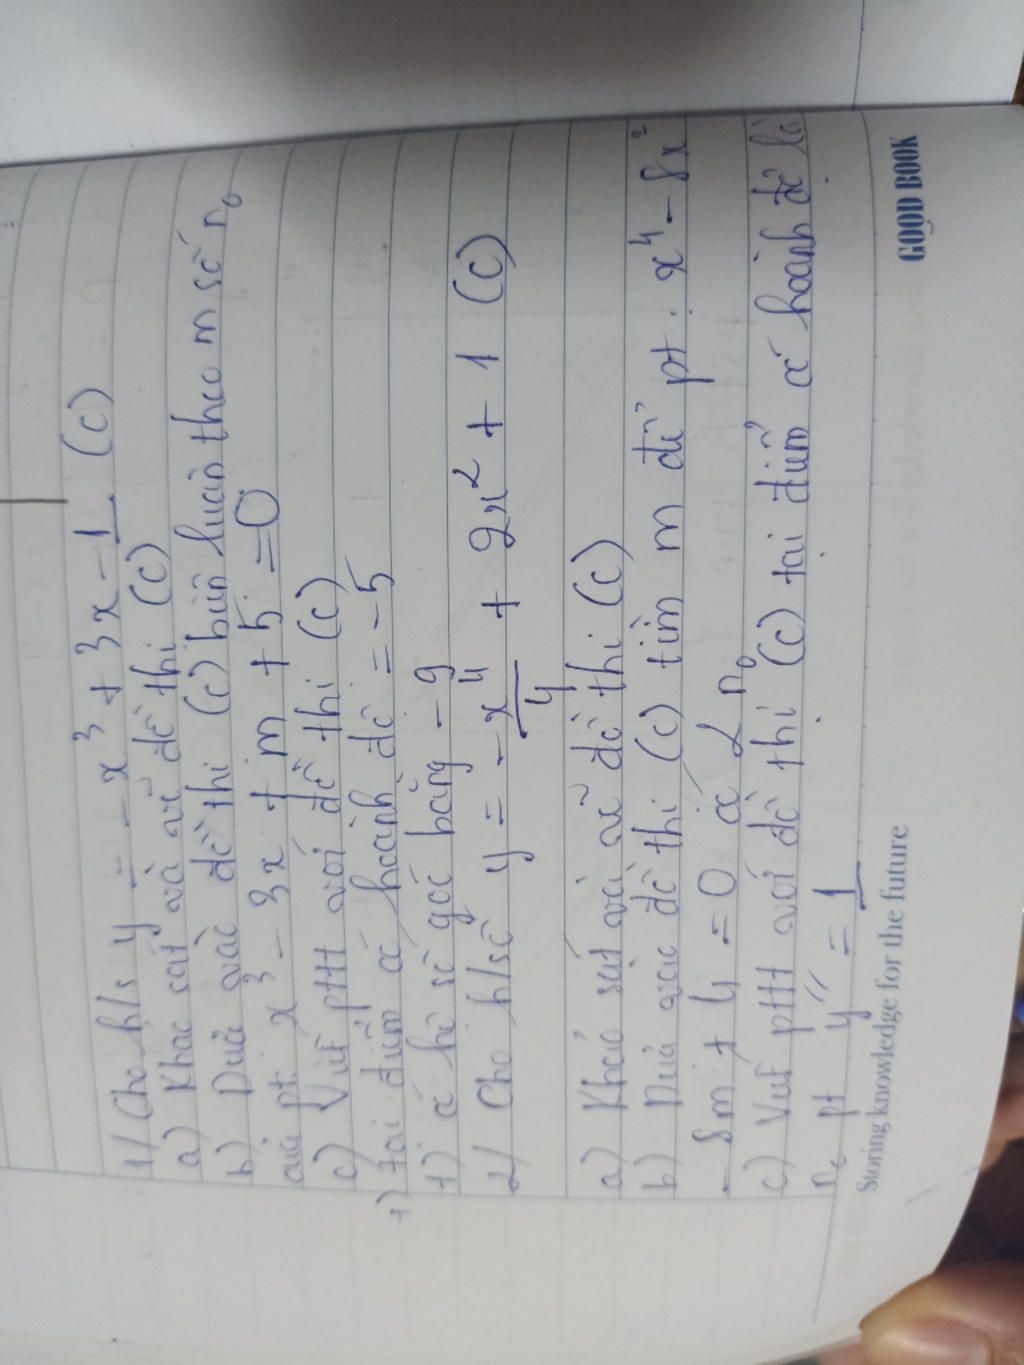 1/ Cho h/s y = -x³ + 3x - 1 (C)
a) Khảo sát và vẽ đồ thị (C)
b) Dựa vào đồ thị (C) biện luận theo m số n₀
của pt: x³ - 3x + m + 5 = 0
c) Viết pttt với đồ thị (C)
+) tại điểm có hoành độ = -5
+) có hệ số góc bằng -9
2/ Cho h/số y = -x⁴/4 + 2x² + 1 (C)
a) Khảo sát và vẽ đồ thị (C)
b) Dựa vào đồ thị (C) tìm m để pt: x⁴ - 8x²
- 8m + 4 = 0 có 2 n₀
c) Viết pttt với đồ thị (C) tại điểm có hoành độ là
n₀ pt y'' = 1
Storing knowledge for the future GOOD BOOK